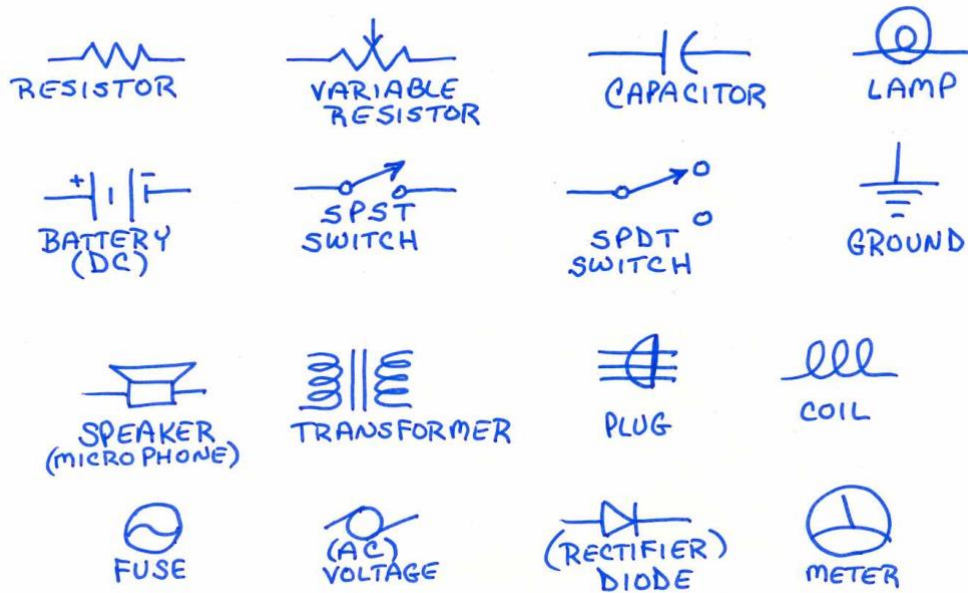 RESISTOR
VARIABLE
RESISTOR
CAPACITOR
LAMP
+ -
BATTERY
(DC)
SPST
SWITCH
SPDT
SWITCH
GROUND
SPEAKER
(MICROPHONE)
TRANSFORMER
PLUG
COIL
FUSE
(AC)
VOLTAGE
(RECTIFIER)
DIODE
METER